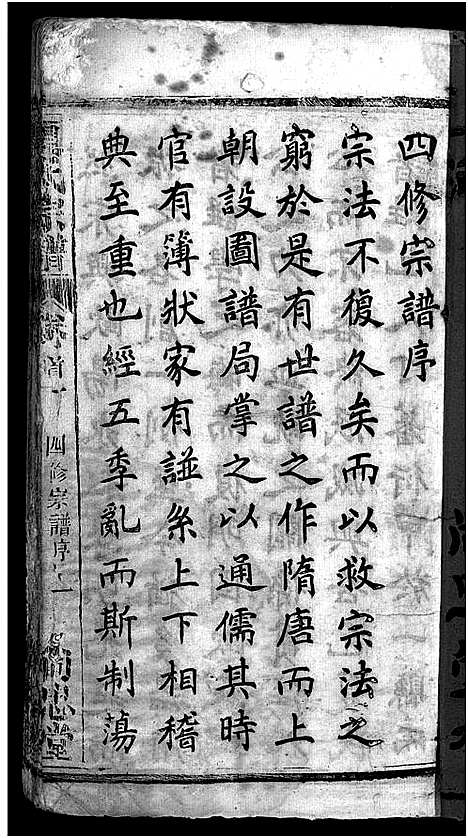 四修宗譜序
宗法不復久矣而以救宗法之
窮於是有世譜之作隋唐而上
朝設圖譜局掌之以通儒其時
官有簿狀家有譜系上下相稽
典至重也經五季亂而斯制蕩
卷首一
四修宗譜序
堂